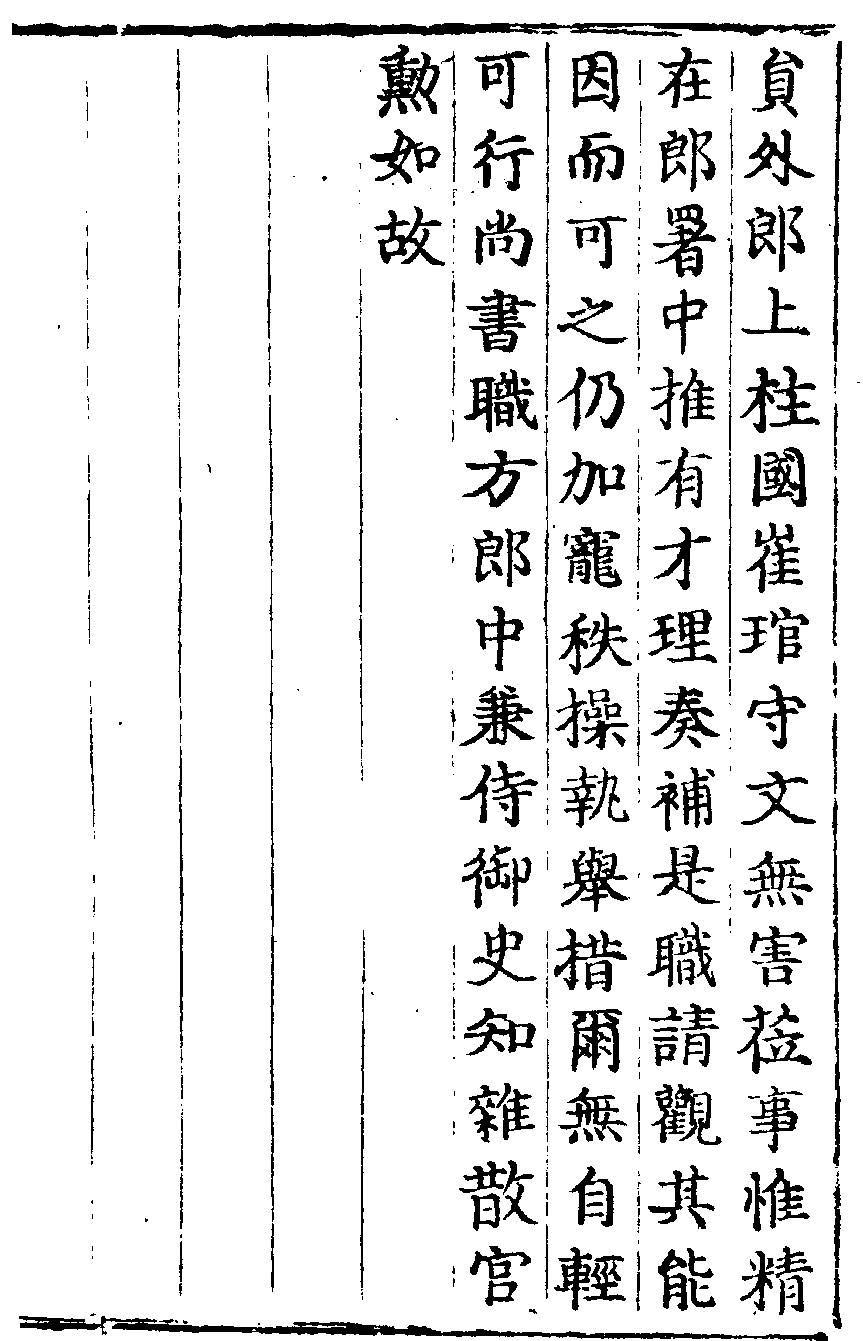 貟外郎上柱國崔琯守文無害莅事惟精
在郎署中推有才理奏補是職請觀其能
因而可之仍加寵秩操執舉措爾無自輕
可行尚書職方郎中兼侍御史知雜散官
勲如故